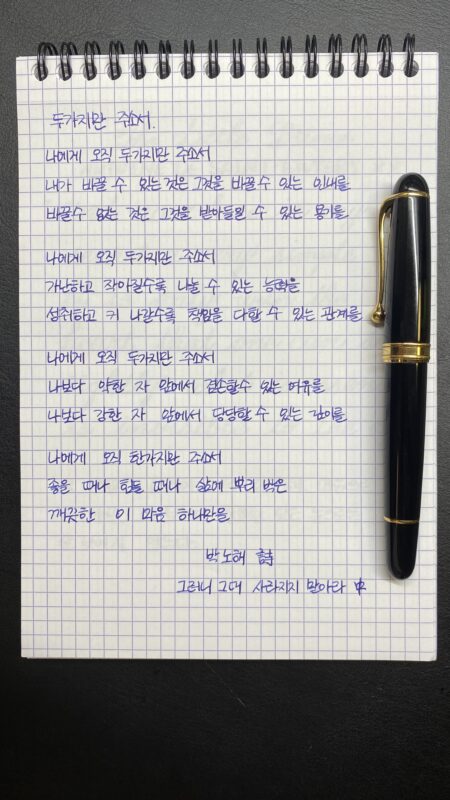 두가지만 주소서.
나에게 오직 두가지만 주소서
내가 바꿀 수 있는것은 그것을 바꿀수 있는 인내를
바꿀수 없는 것은 그것을 받아들일 수 있는 용기를
나에게 오직 두가지만 주소서
가난하고 작아질수록 나눌 수 있는 능력을
성취하고 커 나갈수록 책임을 다할 수 있는 관계를
나에게 오직 두가지만 주소서
나보다 약한 자 앞에서 겸손할수 있는 여유를
나보다 강한 자 앞에서 당당할 수 있는 깊이를
나에게 오직 한가지만 주소서
좋을 때나 힘들 때나 삶에 뿌리 박은
깨끗한 이 마음 하나만을
박노해 詩
그러니 그대 사라지지 말아라 中